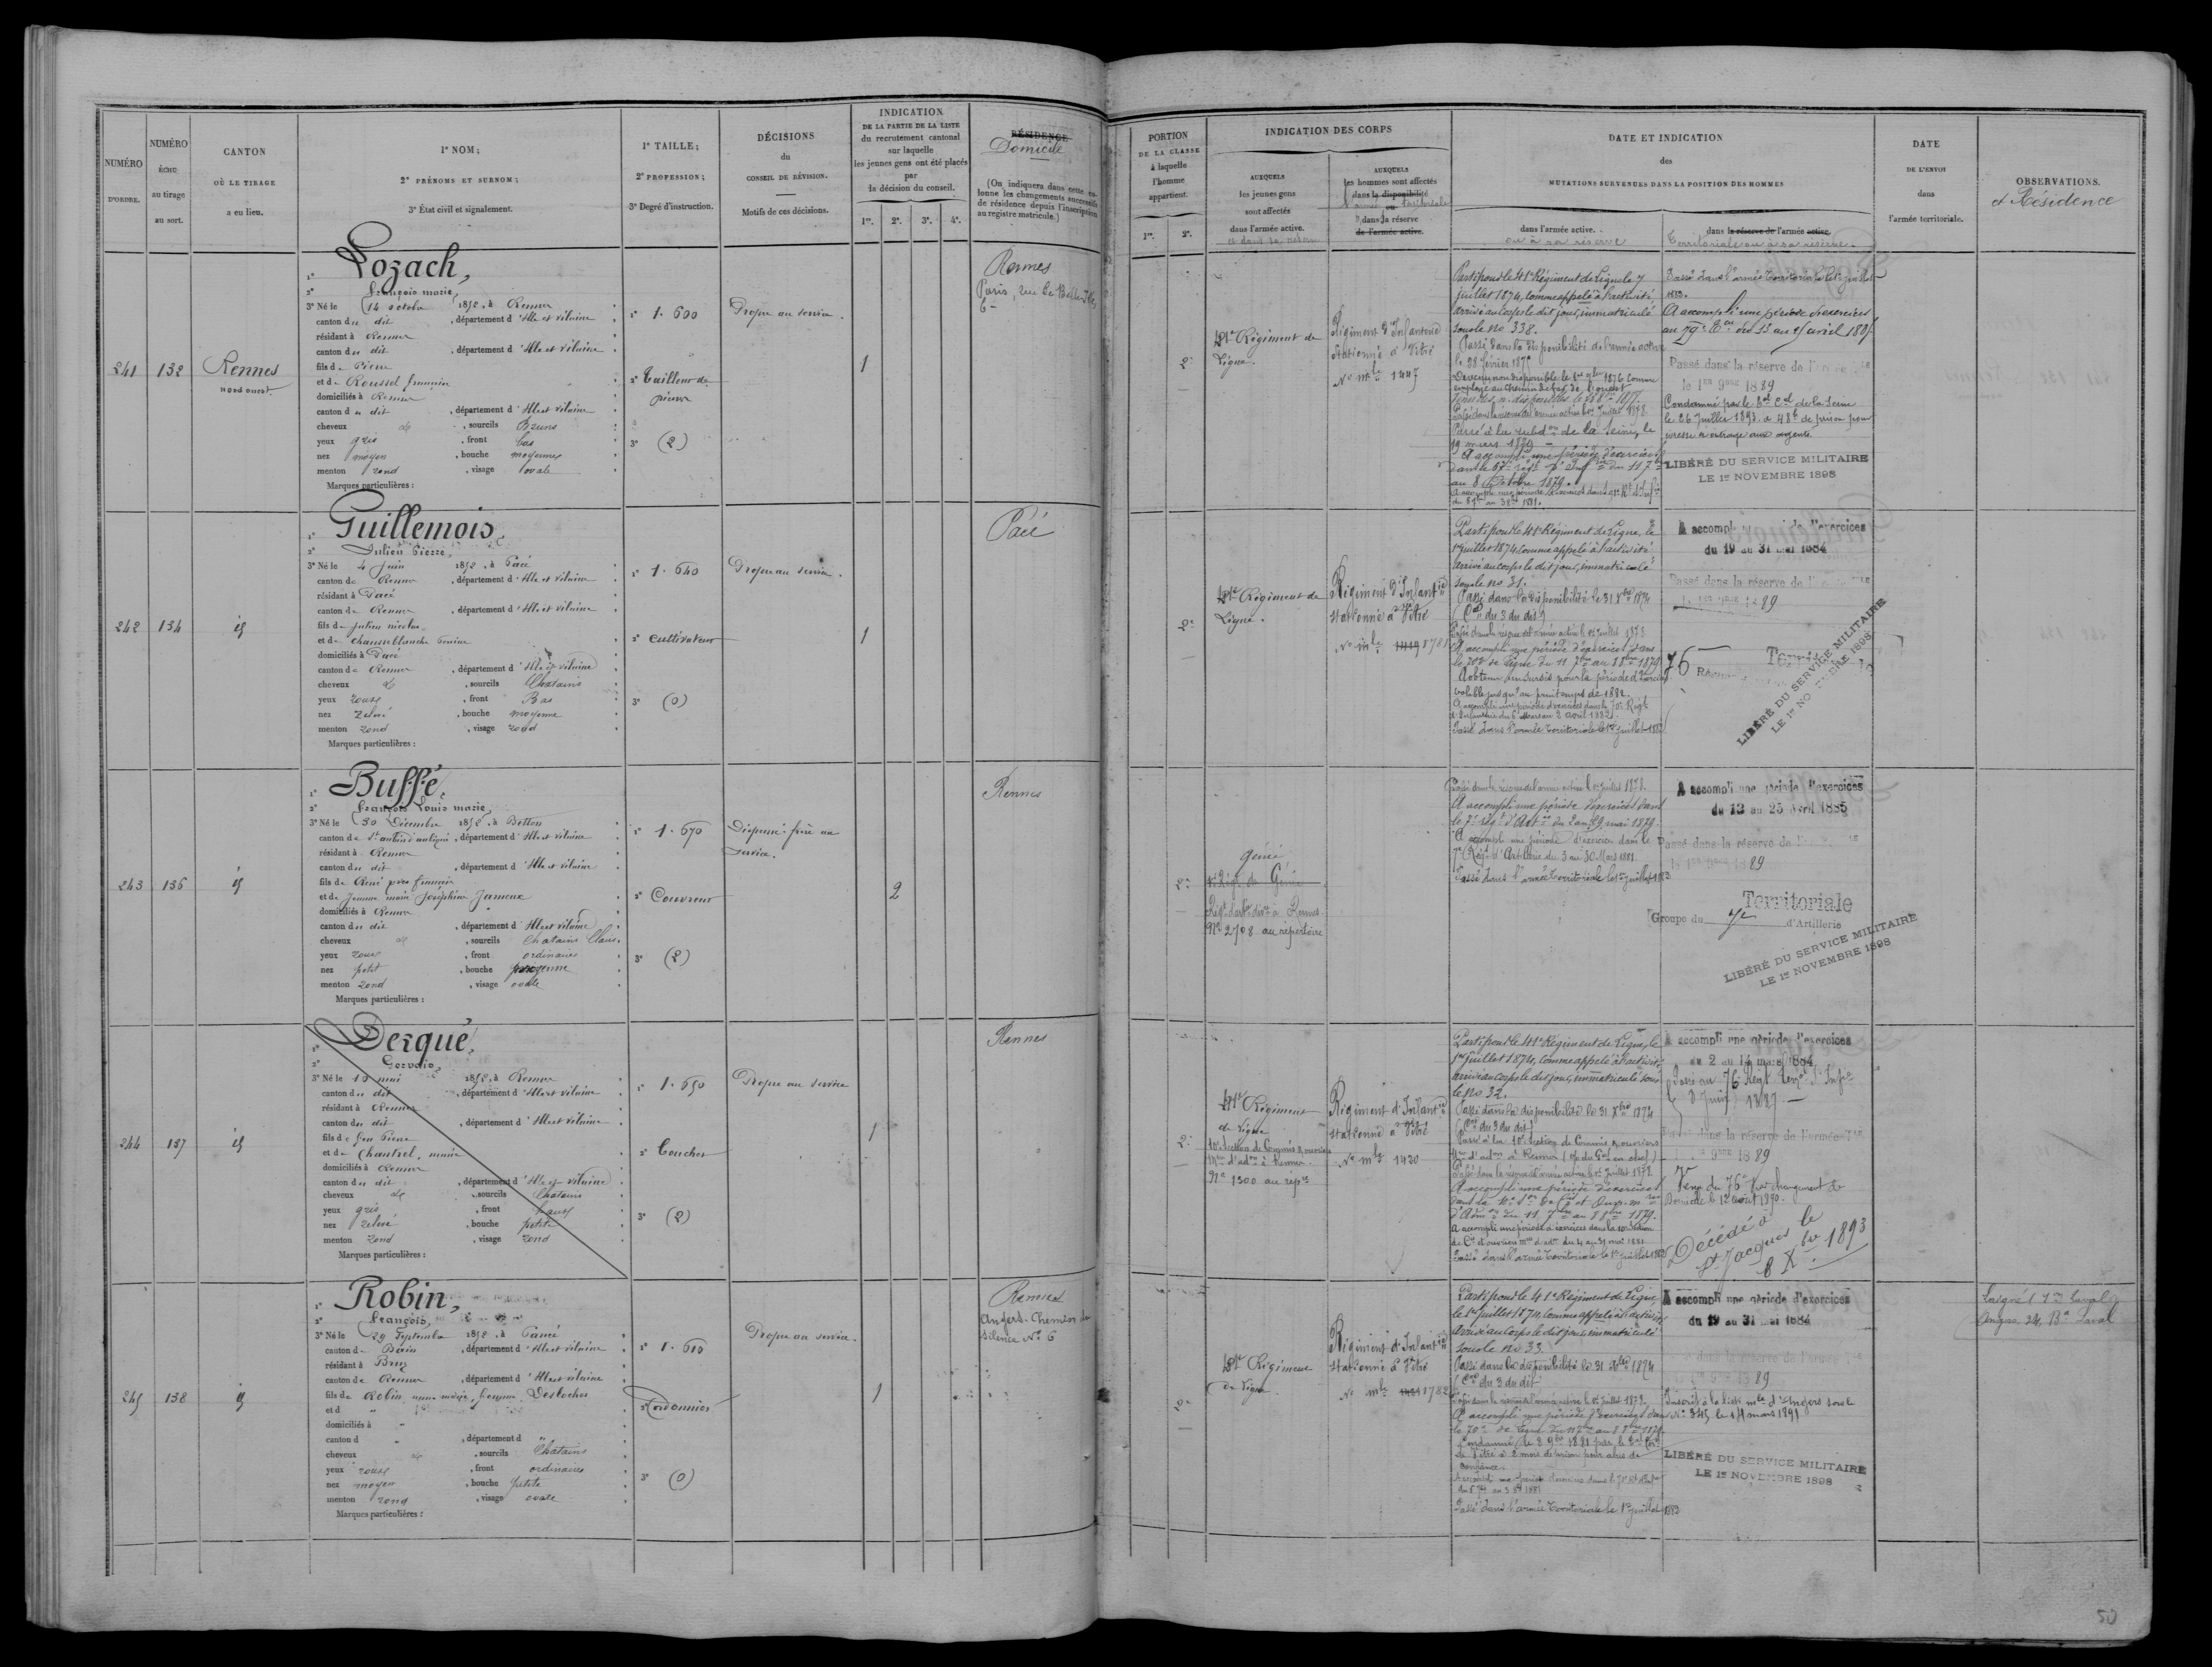 NUMÉRO
D'ORDRE.
NUMÉRO
ÉCHU
au tirage
au sort.
CANTON
OÙ LE TIRAGE
a eu lieu.
1° NOM;
2° PRÉNOMS ET SURNOM;
3° État civil et signalement.
1° TAILLE;
2° PROFESSION;
3° Degré d'instruction.
DÉCISIONS
du
CONSEIL DE RÉVISION.
Motifs de ces décisions.
INDICATION
DE LA PARTIE DE LA LISTE
du recrutement cantonal
sur laquelle
les jeunes gens ont été placés
par
la décision du conseil.
1re. 2e. 3e. 4e.
RÉSIDENCE
Domicile
(On indiquera dans cette co-
lonne les changements successifs
de résidence depuis l'inscription
au registre matricule.)
PORTION
DE LA CLASSE
à laquelle
l'homme
appartient.
1re. 2e.
INDICATION DES CORPS
AUXQUELS
les jeunes gens
sont affectés
dans l'armée active.
AUXQUELS
les hommes sont affectés
dans la disponibilité
ou
dans la réserve
de l'armée active.
DATE ET INDICATION
des
MUTATIONS SURVENUES DANS LA POSITION DES HOMMES
dans l'armée active.
ou à sa réserve
dans la réserve de l'armée active.
Territoriale ou à sa réserve.
DATE
DE L'ENVOI
dans
l'armée territoriale.
OBSERVATIONS.
et Résidence
241
132
Rennes
nord ouest.
1° Lozach,
2° François marie,
3° Né le 14 octobre 1852, à Rennes
canton du dit, département d'Ille et vilaine
résidant à Rennes
canton du dit, département d'Ille et vilaine
fils de Pierre
et de Roussel françoise
domiciliés à Rennes
canton du dit, département d'Ille et vilaine
cheveux et, sourcils Bruns
yeux gris, front bas
nez moyen, bouche moyenne
menton rond, visage ovale
Marques particulières :
1° 1.600
2° Tailleur de
pierres
3° (2)
Propre au service.
1
Rennes
Paris, rue de Belle-Ile
6
2e
41e Régiment de
Ligne.
Régiment d'Infanterie
stationné à Vitré
No mle 1447
Parti pour le 41e Régiment de Ligne le 7
juillet 1874, comme appelé à l'activité
arrivé au corps le dit jour, immatriculé
sous le no 338.
Passé dans la disponibilité de l'armée active
le 28 février 1875
Passé dans la réserve de l'armée active le 1er juillet 1878.
Passé à la subdon de la Seine, le
19 mars 1879
A accompli une période d'exercices
au 8 Octobre 1879.
Passé dans l'armée territoriale le 1er juillet
1883.
A accompli une période d'exercices
Passé dans la réserve de l'armée Tle
le 1er 9bre 1889
Condamné par le Bal Cel de la Seine
le 26 Juillet 1893 à 48h de prison pour
ivresse et outrage aux agents.
LIBÉRÉ DU SERVICE MILITAIRE
LE 1er NOVEMBRE 1898
242
134
id
1° Guillemois,
2° Julien Pierre,
3° Né le 4 Juin 1852, à Pacé
canton de Rennes, département d'Ille et vilaine
résidant à Pacé
canton de Rennes, département d'Ille et vilaine
fils de Julien nicolas
et de chausseblanche
domiciliés à Pacé
canton de Rennes, département d'Ille et vilaine
cheveux et, sourcils Chatains
yeux roux, front Bas
nez relevé, bouche moyenne
menton rond, visage rond
Marques particulières :
1° 1.640
2° cultivateur
3° (0)
Propre au service.
1
Pacé
2e
41e Régiment de
Ligne.
Régiment d'Infantie
stationné à Vitré
No mle 1419 8781
Parti pour le 41e Régiment de Ligne, le
1er juillet 1874, comme appelé à l'activité
arrivé au corps le dit jour, immatriculé
sous le no 31.
Passé dans la disponibilité le 31 Xbre 1874
(Cre du 3 du dit)
Passé dans la réserve de l'armée active le 1er juillet 1878
A accompli une période d'exercices dans
le 70e de ligne du 11 7bre au 8 8bre 1879
A obtenu un sursis pour la période d'exercices
valable jusqu'au printemps de 1882.
A accompli une période d'exercices dans le 70e Régt
d'Infanterie du 6 mars au 2 avril 1882
Passé dans l'armée territoriale le 1er juillet 1883
A accompli une période d'exercices
du 19 au 31 mai 1884
Passé dans la réserve de l'armée Tle
le 1er 9bre 1889
76
Territorial
LIBÉRÉ DU SERVICE MILITAIRE
LE 1er NOVEMBRE 1898
243
136
id
1° Buffé,
2° François Louis marie,
3° Né le 30 Décembre 1852, à Betton
canton de St aubin d'aubigné, département d'Ille et vilaine
résidant à Rennes
canton du dit, département d'Ille et vilaine
fils de René pre françois
et de Jeanne marie Joséphine Jameux
domiciliés à Rennes
canton du dit, département d'Ille et vilaine
cheveux et, sourcils Chatains Clairs
yeux roux, front ordinaire
nez petit, bouche moyenne
menton rond, visage ovale
Marques particulières :
1° 1.670
2° Couvreur
3° (2)
Dispensé frère au
service.
2
Rennes
2e
Génie
Régt d'arte divre à Rennes
No 2708 au répertoire
Passé dans la réserve de l'armée active le 1er juillet 1878.
A accompli une période d'exercices dans
le 7e régt d'Artie du 2 au 29 mai 1879.
A accompli une période d'exercices dans le
7e Régt d'Artillerie du 3 au 30 Mars 1881
Passé dans l'armée territoriale le 1er juillet 1883
A accompli une période d'exercices
du 13 au 25 Avril 1885
Passé dans la réserve de l'armée Tle
le 1er 9bre 1889
Territoriale
Groupe du 7e d'Artillerie
LIBÉRÉ DU SERVICE MILITAIRE
LE 1er NOVEMBRE 1898
244
137
id
1° Derqué,
2° Gervais,
3° Né le 10 mai 1852, à Rennes
canton du dit, département d'Ille et vilaine
résidant à Rennes
canton du dit, département d'Ille et vilaine
fils de feu Pierre
et de Chantrel, marie
domiciliés à Rennes
canton du dit, département d'Ille et vilaine
cheveux et, sourcils Chatains
yeux gris, front haut
nez relevé, bouche petite
menton rond, visage rond
Marques particulières :
1° 1.650
2° boucher
3° (2)
Propre au service
1
Rennes
2e
41e Régiment
de Ligne
10e Section de Commis & ouvriers
No 1300 au repre
Régiment d'Infantie
stationné à Vitré
No mle 1420
Parti pour le 41e Régiment de Ligne, le
1er juillet 1874, comme appelé à l'activité
arrivé au corps le dit jour, immatriculé sous
le no 32.
Passé dans la disponibilité le 31 Xbre 1874
(Cre du 3 du dit)
Passé à la 10e Section de Commis & ouvriers
Passé dans la réserve de l'armée active le 1er juillet 1878.
A accompli une période d'exercices
d'Admon du 11 7bre au 8 8bre 1879.
A accompli une période d'exercices dans la 10e Section
Passé dans l'armée territoriale le 1er juillet 1883
A accompli une période d'exercices
du 2 au 14 mars 1884
Passé au 76e Régt Terral d'Infie
Passé dans la réserve de l'armée Tle
le 1er 9bre 1889
Venu du 76e par changement de
Domicile le 12 août 1890.
Décédé à
St Jacques le
8 Xbre 1893
245
138
id
1° Robin,
2° François,
3° Né le 29 Septembre 1852, à Pancé
canton de Bain, département d'Ille et vilaine
résidant à Bruz
canton de Rennes, département d'Ille et vilaine
fils de Robin, anne marie, femme Desloches
et d
domiciliés à
canton d, département d
cheveux et, sourcils Chatains
yeux roux, front ordinaire
nez moyen, bouche petite
menton rond, visage ovale
Marques particulières :
1° 1.610
2° Cordonnier
3° (0)
Propre au service.
1
Rennes
Angers. Chemin du
Silence No 6
2e
41e Régiment
de Ligne
Régiment d'Infantie
stationné à Vitré
No mle 1421 1782
Parti pour le 41e Régiment de Ligne
le 1er juillet 1874, comme appelé à l'activité
Arrivé au corps le dit jour, immatriculé
sous le no 33.
Passé dans la disponibilité le 31 Xbre 1874
(Cre du 3 du dit)
Passé dans la réserve de l'armée active le 1er juillet 1878.
A accompli une période d'exercices dans
le 70e de ligne du 11 7bre au 8 8bre 1879.
de Vitré à 2 mois de prison pour abus de
confiance.
Passé dans l'armée territoriale le 1er juillet 1883
A accompli une période d'exercices
du 19 au 31 mai 1884
Passé dans la réserve de l'armée Tle
le 1er 9bre 1889
Inscrit à la liste mle d'Angers sous le
No 345 le 14 mars 1891
LIBÉRÉ DU SERVICE MILITAIRE
LE 1er NOVEMBRE 1898
Angers 24, Bd Laval
50